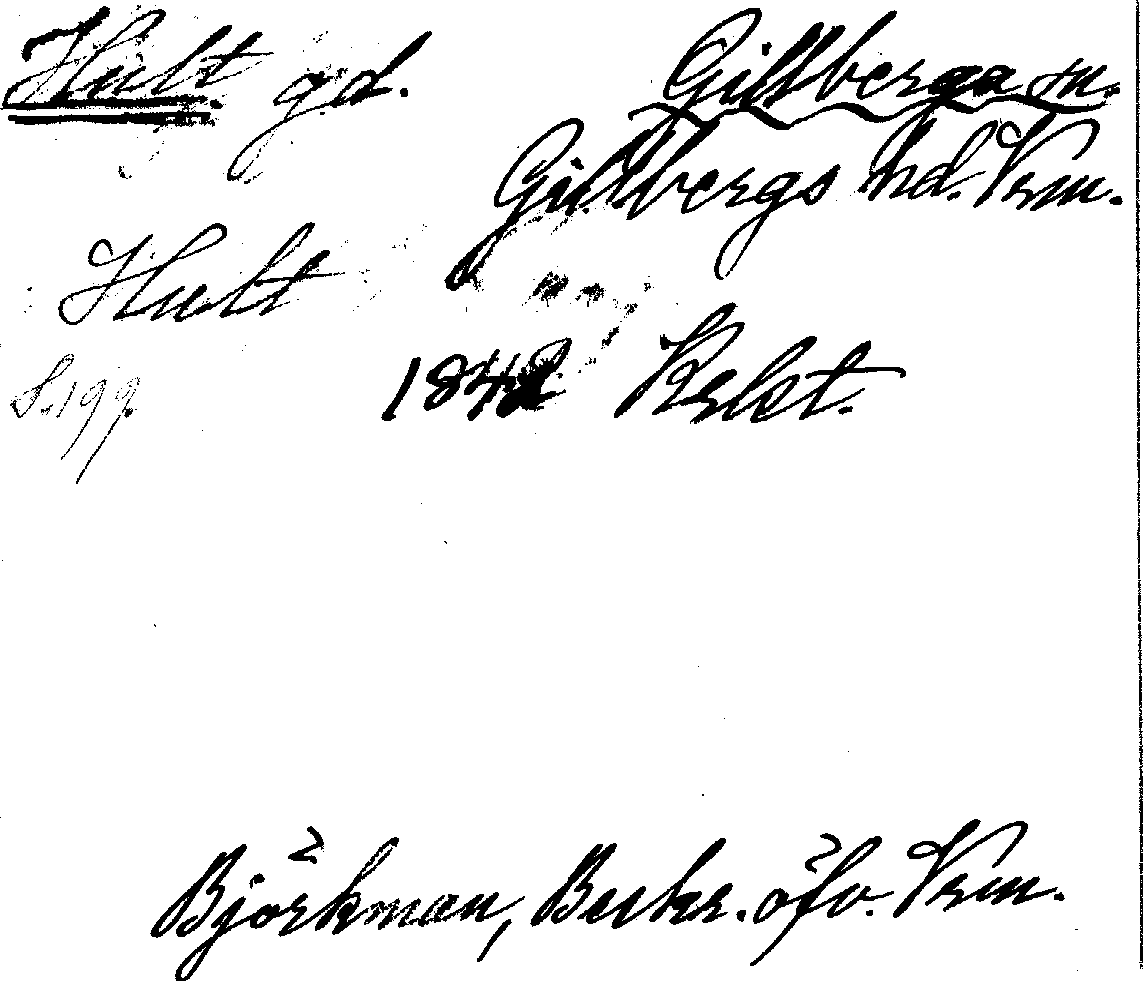 Hult. gd. Gillberga sn.
Gillbergs hd. Vrm.
Hult
S. 199. 1842 Krlst.
Björkman, Beskr. öfv. Vrm.